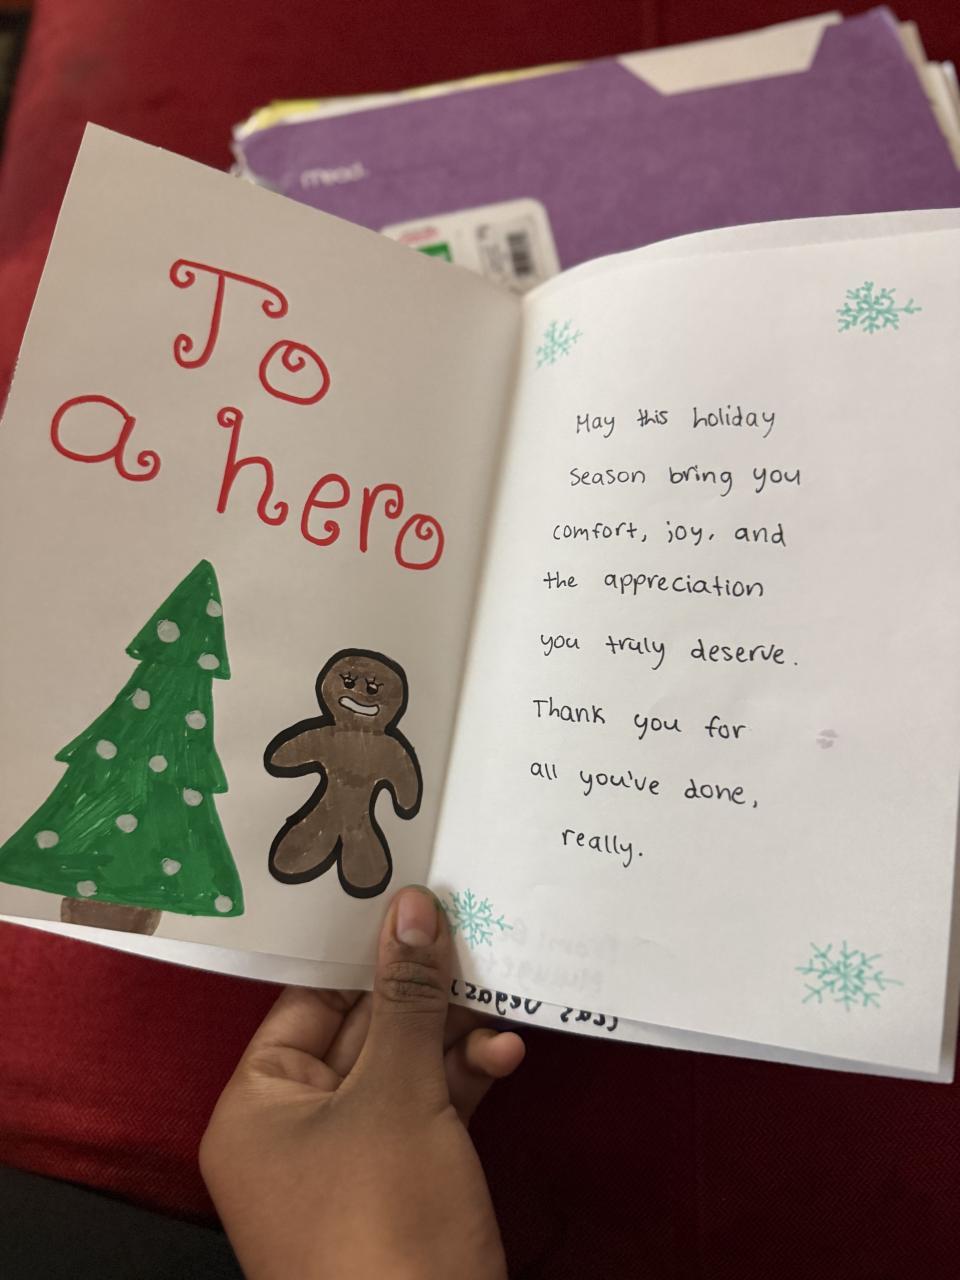 mead
To
a hero
May this holiday
season bring you
comfort, joy, and
the appreciation
you truly deserve.
Thank you for
all you've done,
really.